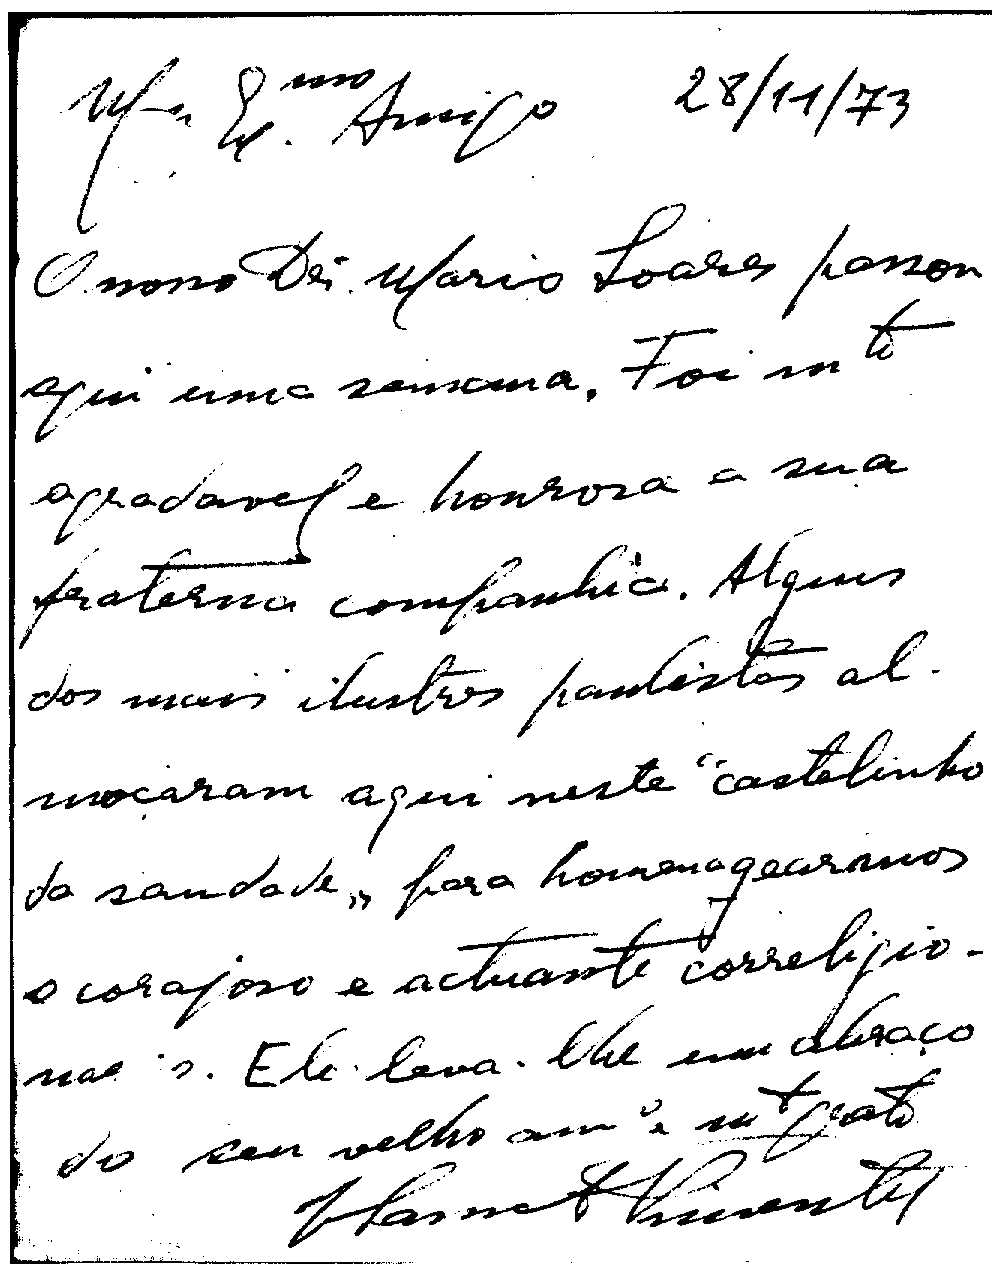 Ex.mo Amigo 28/11/73
O nosso Dr. Mario Soares passou
aqui uma semana. Foi mto
agradavel e honrosa a sua
fraterna companhia. Alguns
dos mais ilustres paulistas al-
moçaram aqui neste "castelinho
da saudade„ para homenagearmos
o corajoso e actuante correligio-
nario. Ele leva-lhe um abraço
do seu velho amº e mt grato